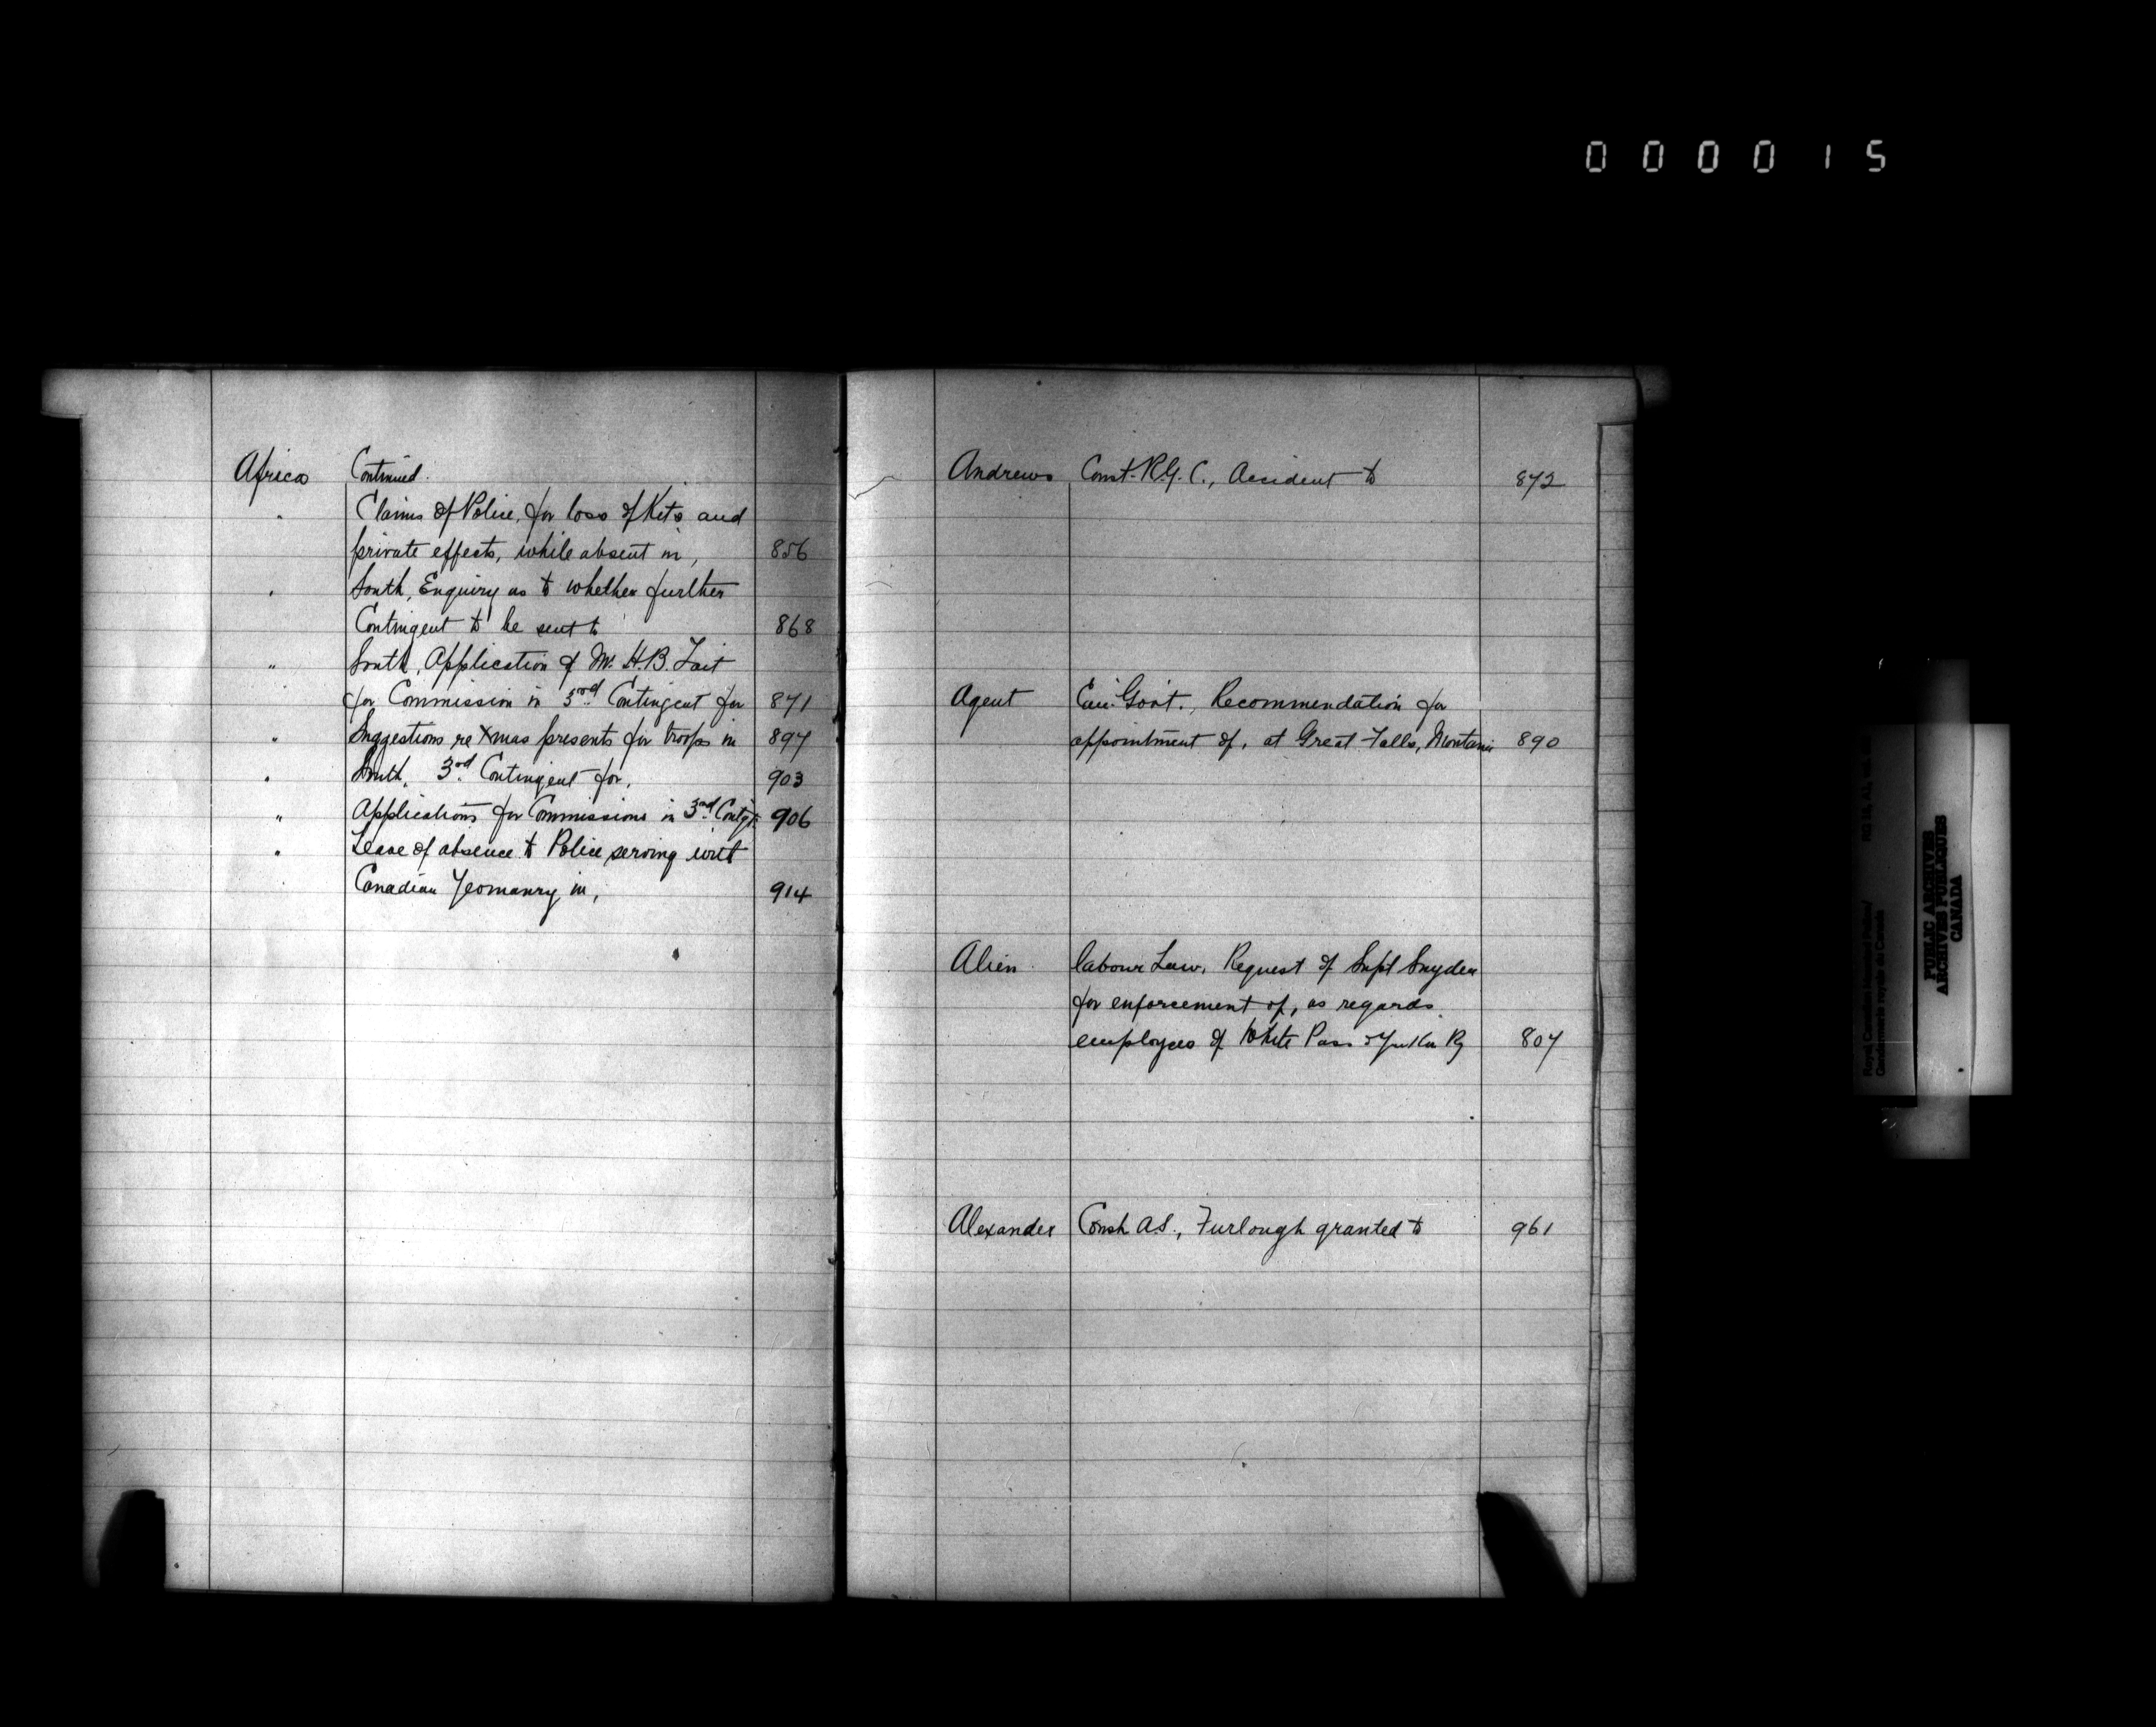 000015
Africa Continued.
" Claims of Police, for loss of Kits and
private effects, while absent in, 856
" South, Enquiry as to whether further
Contingent to be sent to 868
" South, Application of Mr. H.B. Tait
for Commission in 3rd Contingent for 871
" Suggestions re Xmas presents for troops in 897
" South, 3rd Contingent for, 903
" Applications for Commissions in 3rd Contgt. 906
" Leave of absence to Police serving with
Canadian Yeomanry in, 914
Andrews Const. R.G.C., Accident to 872
Agent Can. Govt., Recommendation for
appointment of, at Great Falls, Montana 890
Alien labour Law, Request of Supt Snyder
for enforcement of, as regards
employees of White Pass & Yukon Ry 807
Alexander Const. A.S., Furlough granted to 961
PUBLIC ARCHIVES
ARCHIVES PUBLIQUES
CANADA
Royal Canadian Mounted Police/
Gendarmerie royale du Canada